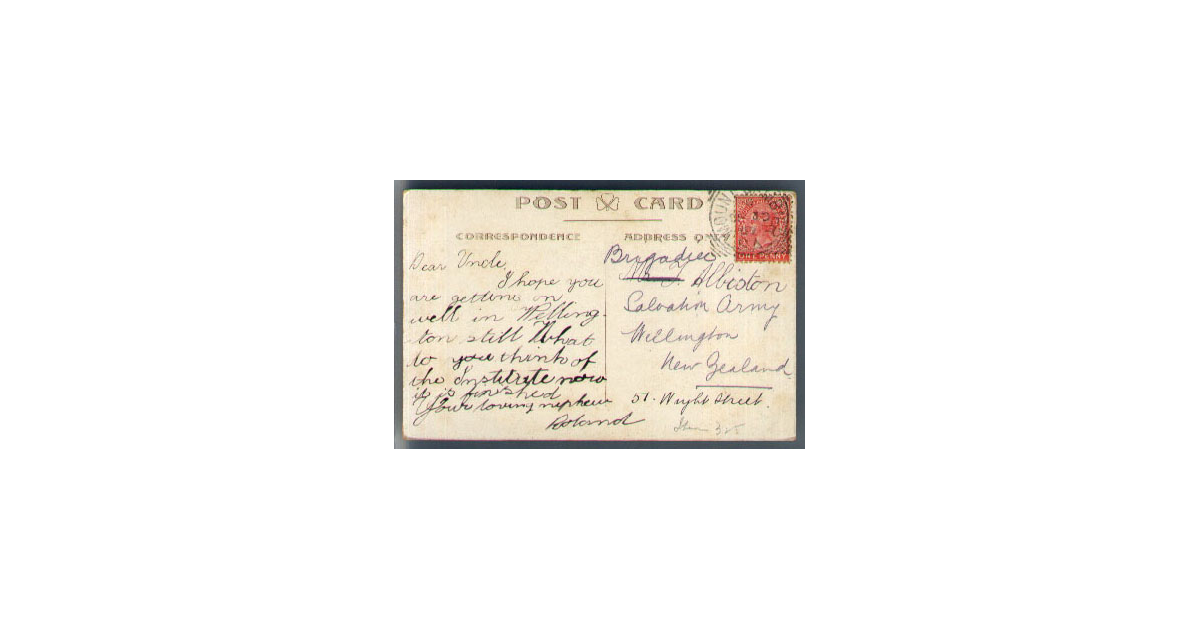 POST CARD
CORRESPONDENCE
Dear Uncle
I hope you
are getting on
well in Welling-
ton still What
do you think of
the Institute now
it is finished
Your loving nephew
Roland
ADDRESS ONLY
Brigadier
Albiston
Salvation Army
Wellington
New Zealand
51. Wright Street.
ONE PENNY